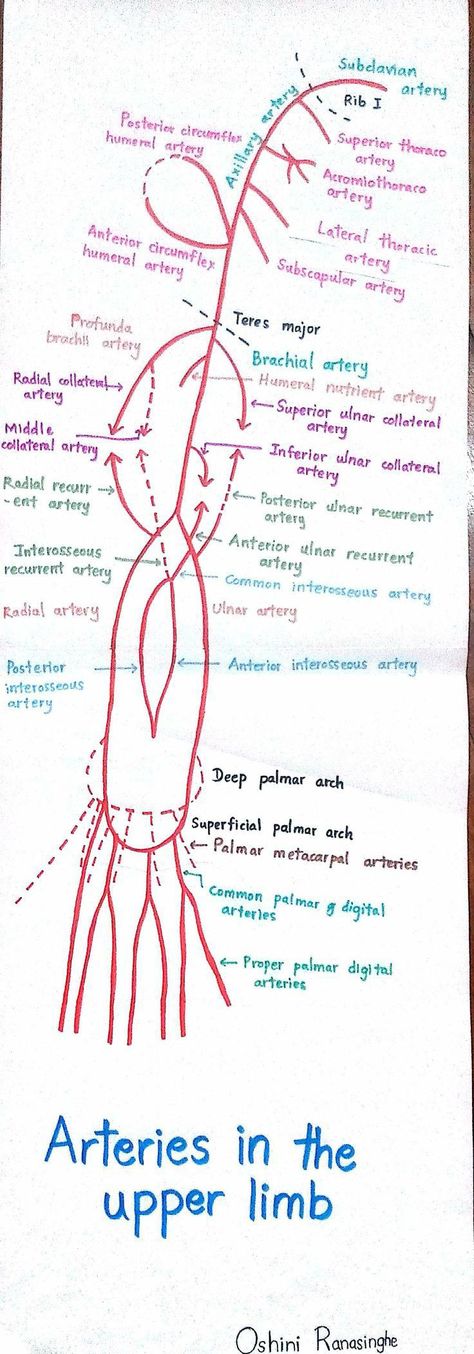 Subclavian
artery
Rib I
Axillary artery
Posterior circumflex
humeral artery
Superior thoraco
artery
Acromiothoraco
artery
Lateral thoracic
artery
Anterior circumflex
humeral artery
Subscapular artery
Teres major
Profunda
brachii artery
Brachial artery
Humeral nutrient artery
Radial collateral
artery
Superior ulnar collateral
artery
Middle
collateral artery
Inferior ulnar collateral
artery
Radial recurr
-ent artery
Posterior ulnar recurrent
artery
Anterior ulnar recurrent
artery
Interosseous
recurrent artery
Common interosseous artery
Radial artery
Ulnar artery
Posterior
interosseous
artery
Anterior interosseous artery
Deep palmar arch
Superficial palmar arch
Palmar metacarpal arteries
Common palmar g digital
arteries
Proper palmar digital
arteries
Arteries in the
upper limb
Oshini Ranasinghe